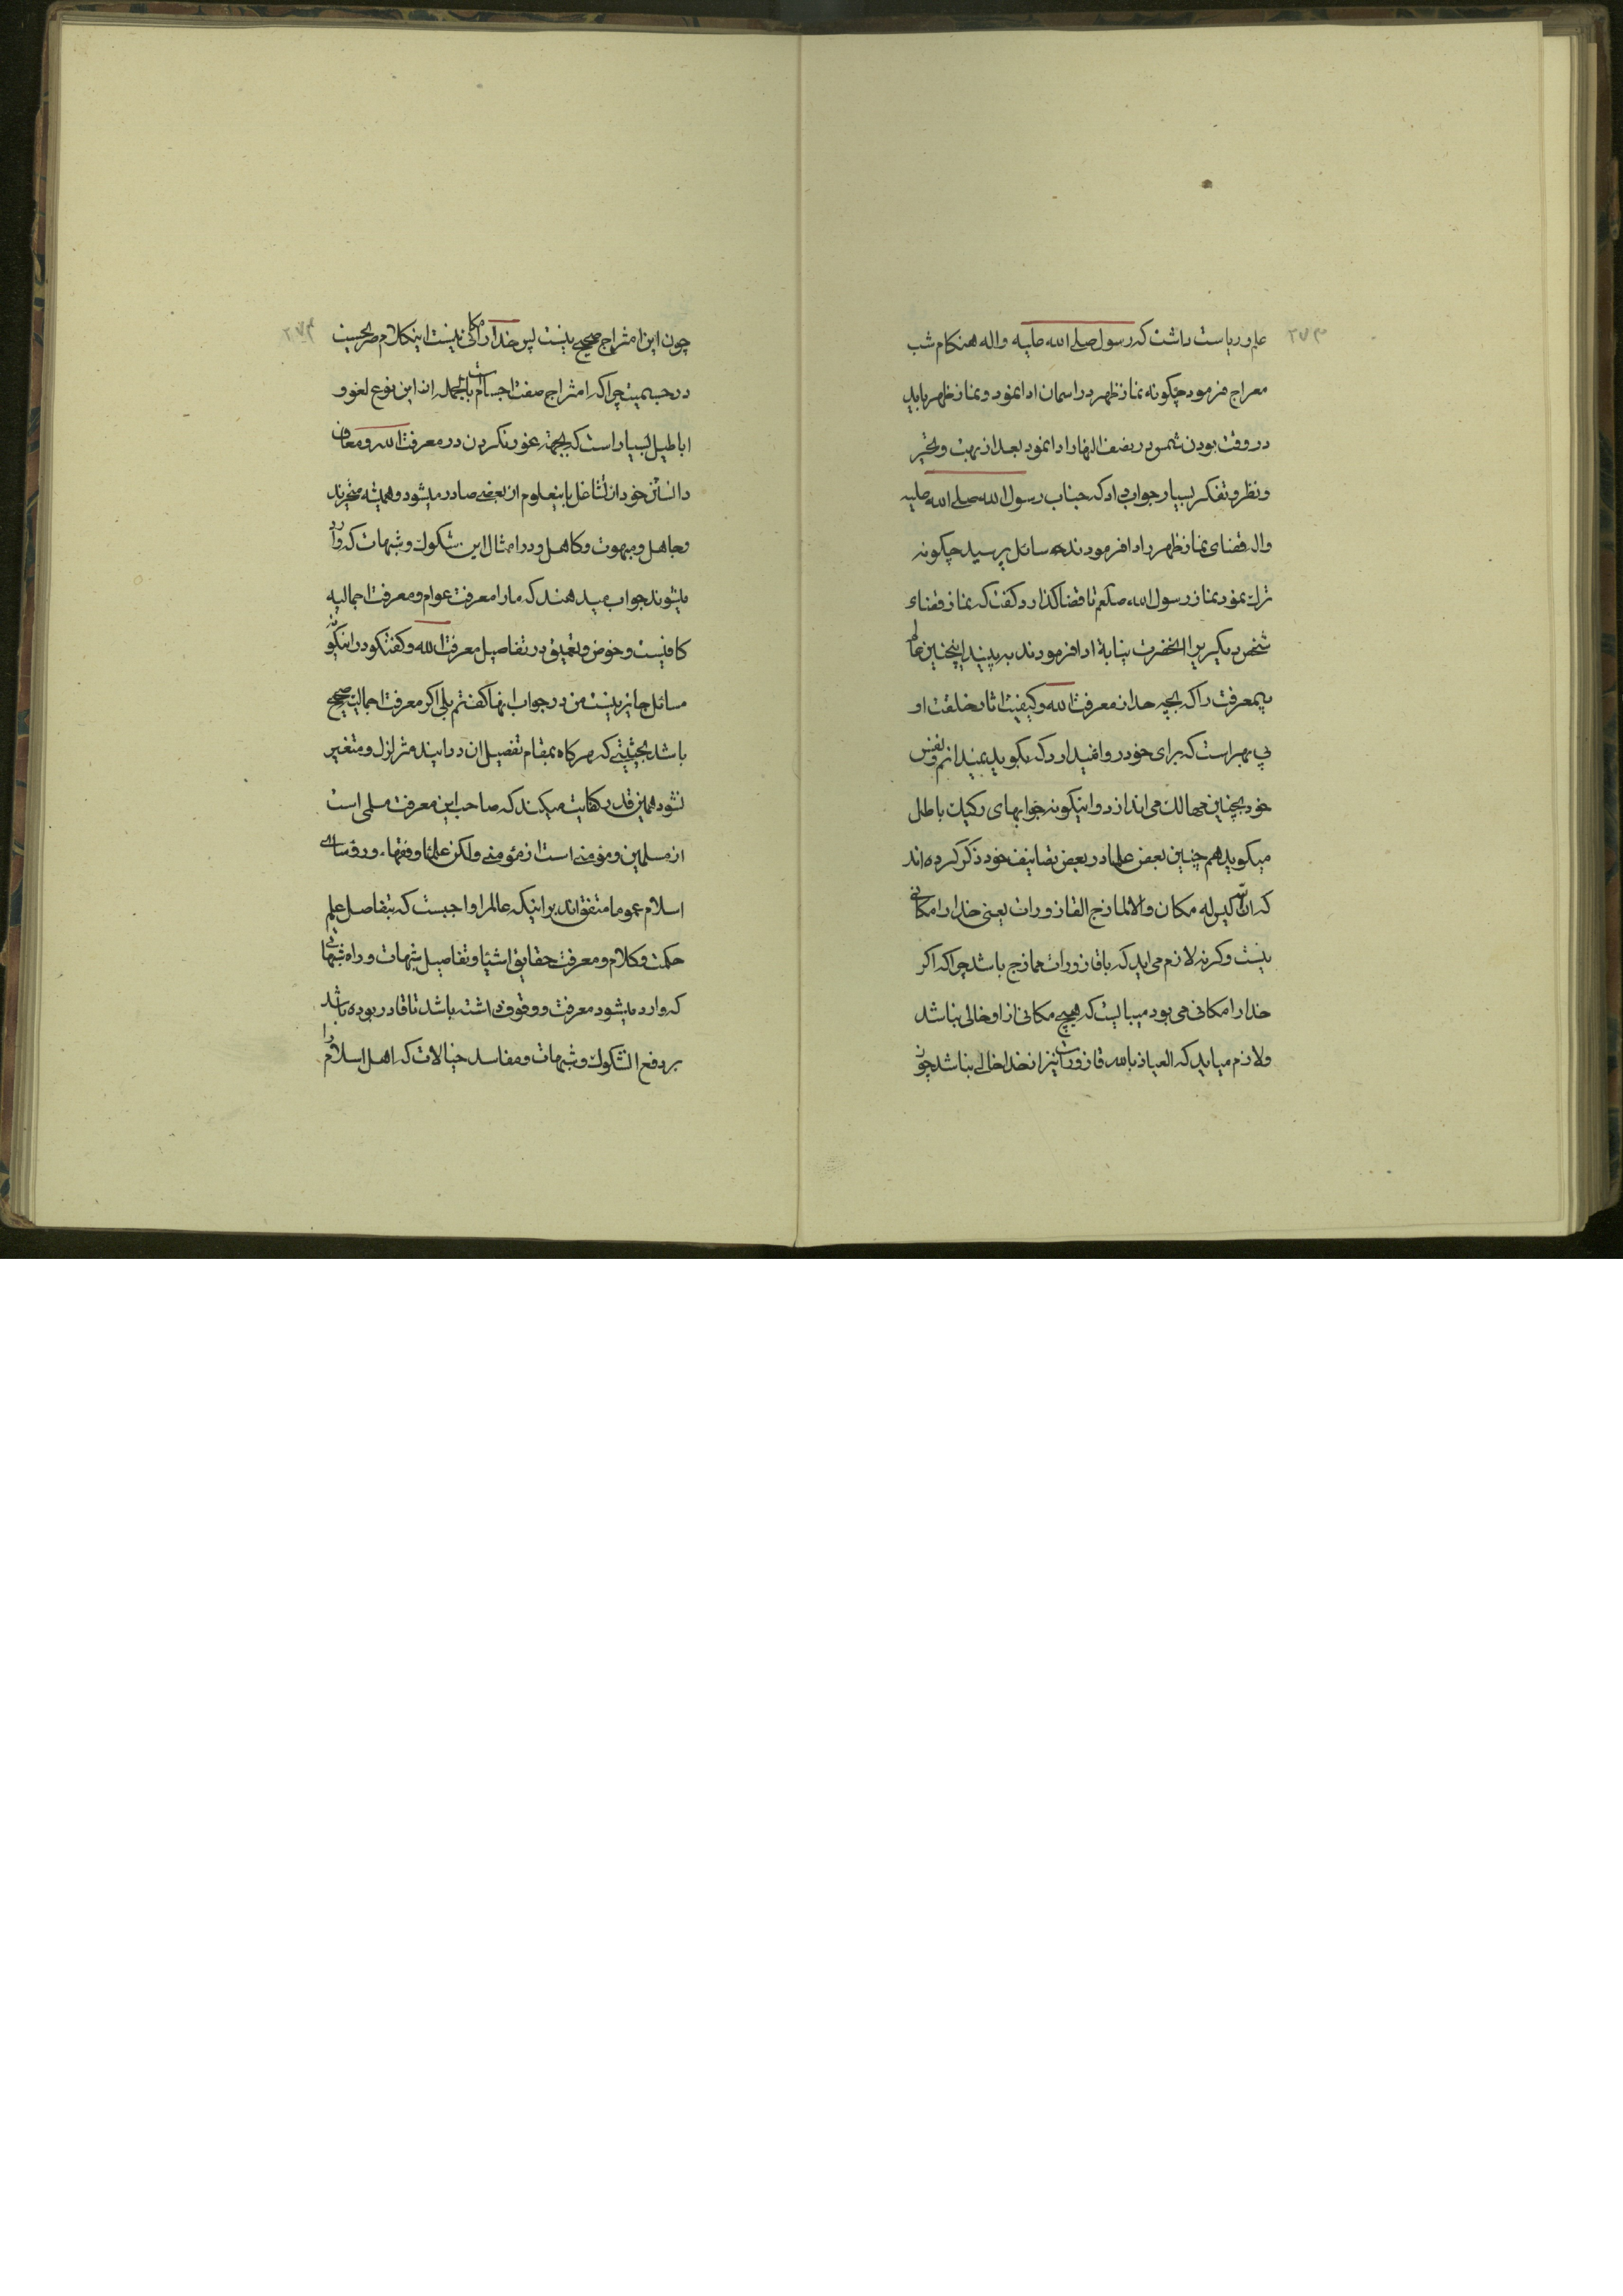 ۲۷۳
علم و ریاست داشت که رسول صلی الله علیه و اله هنکام شب
معراج فرمود چکونه نماز ظهر در اسمان ادا نمود و نماز ظهر باید
در وقت بودن شمس در نصف النهار ادا نمود بعد از بهت و تحیر
و نظر و تفکر بسیار جواب داد که جناب رسول الله صلی الله علیه
واله قضای نماز ظهر را ادا فرمودند سائل پرسید چکونه
ترک نمود نماز رسول الله صلعم تا قضا کذارد کفت که نماز قضاء
شخص دیکیر برا انحضرت بنیابة ادا فرمودند به بینید اینچنین عالم
بیمعرفت را که بچه حد از معرفت الله و کیفیت اثار خلقت او
بی بهر است که برای خود روا نمیدارد که بکوید نمیدانم و نفس
خود بچنین مهالک می اندازد و اینکونه جوابهای رکیک باطل
میکوید هم چنین بعض علما در بعض تصانیف خود ذکر کرده اند
که ان الله لیس له مکان والا لمازج القاذورات یعنی خدا را مکانی
نیست و کرنه لازم می اید که با قاذورات ممازج باشد چرا که اکر
خدا را مکانی می بود میبایست که هیچ مکانی از او خالی نباشد
ولازم میاید که العیاذ بالله قاذورات نیز از خدا خالی نباشد چون
۲۷۴
چون این امتزاج صحیح نیست پس خدا را مکانی نیست اینکلام صریحست
در جسمیت چرا که امتزاج صفت اجسام است بالجمله از این نوع لغو و
اباطیل بسیار است که بجهة غور نکردن در معرفت الله و معاف
دانستن خود از تشاغل باینعلوم از بعضی صادر میشود و همیشه متحیرند
و جاهل و مبهوت و کاهل و در امثال این شکوک و شبهات که وارد
میشوند جواب میدهند که ما را معرفت عوام و معرفت اجمالیه
کافیست و خوض و تعمیق در تفاصیل معرفت الله و کفتکو در اینکونه
مسائل جایز نیست من در جواب انها کفتم بلی اکر معرفت اجمالیه صحیح
باشد بحیثیتی که هرکاه بمقام تفصیل ان درایند متزلزل و متغیر
نشود همین قدر کفایت میکند که صاحب این معرفت مسلمی است
از مسلمین و مؤمنی است از مؤمنین ولکن علما و فقهاء و رؤسای
اسلام عموما متفق اند بر اینکه عالم را واجبست که بتفاصیل علم
حکمت و کلام و معرفت حقایق اشیا و تفاصیل شبهات و راه شبهاتی
که وارد میشود معرفت و وقوف داشته باشد تا قادر بوده باشد
بر دفع الشکوک و شبهات و مفاسد خیالات که اهل اسلام را